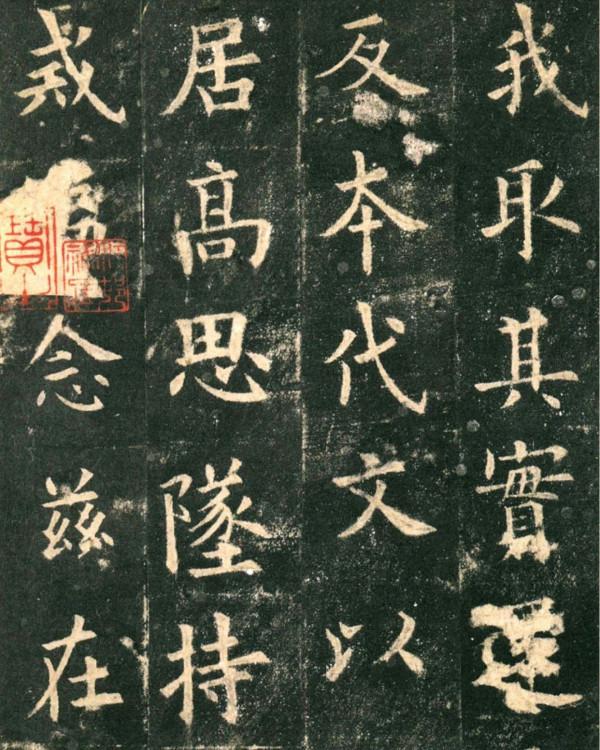 我取其實還
反本代文以
居高思墜持
戒念茲在